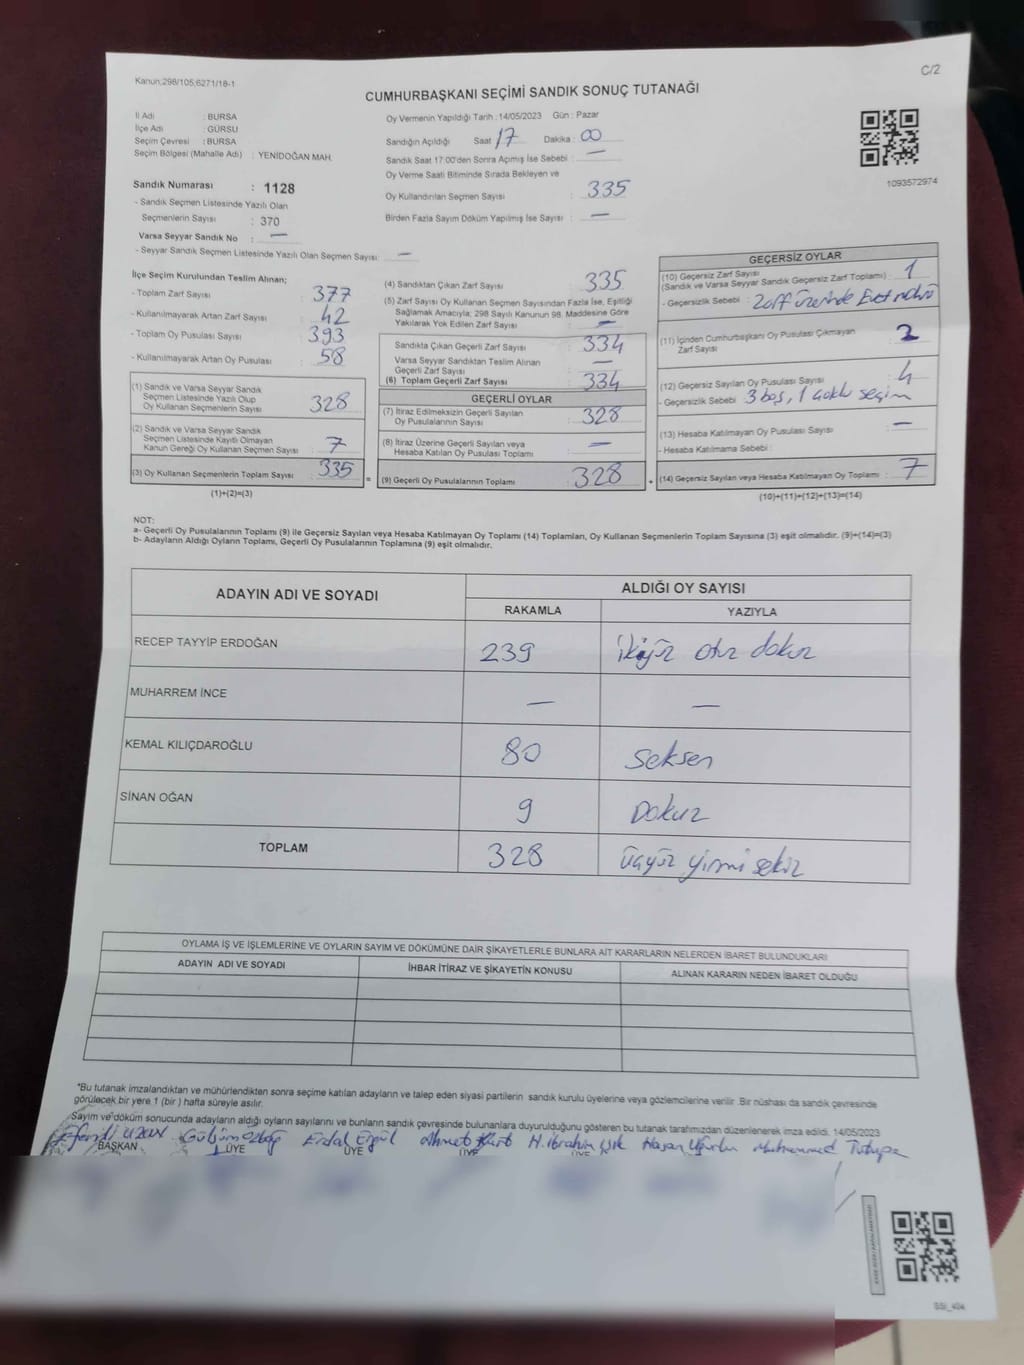 Kanun;298/105;6271/18-1
C/2
CUMHURBAŞKANI SEÇİMİ SANDIK SONUÇ TUTANAĞI
İl Adı : BURSA
İlçe Adı : GÜRSU
Seçim Çevresi : BURSA
Seçim Bölgesi (Mahalle Adı) : YENİDOĞAN MAH.
Sandık Numarası : 1128
- Sandık Seçmen Listesinde Yazılı Olan
Seçmenlerin Sayısı : 370
Varsa Seyyar Sandık No : —
- Seyyar Sandık Seçmen Listesinde Yazılı Olan Seçmen Sayısı: —
Oy Vermenin Yapıldığı Tarih : 14/05/2023 Gün : Pazar
Sandığın Açıldığı Saat : 17 Dakika : 00
Sandık Saat 17:00'den Sonra Açımış İse Sebebi : —
Oy Verme Saati Bitiminde Sırada Bekleyen ve
Oy Kullandırılan Seçmen Sayısı : 335
Birden Fazla Sayım Döküm Yapılmış İse Sayısı : —
1093572974
İlçe Seçim Kurulundan Teslim Alınan;
- Toplam Zarf Sayısı : 377
- Kullanılmayarak Artan Zarf Sayısı : 42
- Toplam Oy Pusulası Sayısı : 393
- Kullanılmayarak Artan Oy Pusulası : 58
(1) Sandık ve Varsa Seyyar Sandık
Seçmen Listesinde Yazılı Olup
Oy Kullanan Seçmenlerin Sayısı : 328
(2) Sandık ve Varsa Seyyar Sandık
Seçmen Listesinde Kayıtlı Olmayan
Kanun Gereği Oy Kullanan Seçmen Sayısı : 7
(3) Oy Kullanan Seçmenlerin Toplam Sayısı : 335
(1)+(2)=(3)
(4) Sandıktan Çıkan Zarf Sayısı : 335
(5) Zarf Sayısı Oy Kullanan Seçmen Sayısından Fazla İse, Eşitliği
Sağlamak Amacıyla; 298 Sayılı Kanunun 98. Maddesine Göre
Yakılarak Yok Edilen Zarf Sayısı : —
Sandıkta Çıkan Geçerli Zarf Sayısı : 334
Varsa Seyyar Sandıktan Teslim Alınan
Geçerli Zarf Sayısı : —
(6) Toplam Geçerli Zarf Sayısı : 334
GEÇERLİ OYLAR
(7) İtiraz Edilmeksizin Geçerli Sayılan
Oy Pusulalarının Sayısı : 328
(8) İtiraz Üzerine Geçerli Sayılan veya
Hesaba Katılan Oy Pusulası Toplamı : —
(9) Geçerli Oy Pusulalarının Toplamı : 328
GEÇERSİZ OYLAR
(10) Geçersiz Zarf Sayısı
(Sandık ve Varsa Seyyar Sandık Geçersiz Zarf Toplamı) : 1
- Geçersizlik Sebebi : Zarf üzerinde Evet mührü
(11) İçinden Cumhurbaşkanı Oy Pusulası Çıkmayan
Zarf Sayısı : 2
(12) Geçersiz Sayılan Oy Pusulası Sayısı : 4
- Geçersizlik Sebebi : 3 boş, 1 çoklu seçim
(13) Hesaba Katılmayan Oy Pusulası Sayısı : —
- Hesaba Katılmama Sebebi :
(14) Geçersiz Sayılan veya Hesaba Katılmayan Oy Toplamı : 7
(10)+(11)+(12)+(13)=(14)
NOT:
a- Geçerli Oy Pusulalarının Toplamı (9) ile Geçersiz Sayılan veya Hesaba Katılmayan Oy Toplamı (14) Toplamları, Oy Kullanan Seçmenlerin Toplam Sayısına (3) eşit olmalıdır. (9)+(14)=(3)
b- Adayların Aldığı Oyların Toplamı, Geçerli Oy Pusulalarının Toplamına (9) eşit olmalıdır.
ADAYIN ADI VE SOYADI ALDIĞI OY SAYISI
RAKAMLA YAZIYLA
RECEP TAYYİP ERDOĞAN 239 ikiyüz otuz dokuz
MUHARREM İNCE — —
KEMAL KILIÇDAROĞLU 80 seksen
SİNAN OĞAN 9 Dokuz
TOPLAM 328 üçyüz yirmi sekiz
OYLAMA İŞ VE İŞLEMLERİNE VE OYLARIN SAYIM VE DÖKÜMÜNE DAİR ŞİKAYETLERLE BUNLARA AİT KARARLARIN NELERDEN İBARET BULUNDUKLARI
ADAYIN ADI VE SOYADI İHBAR İTİRAZ VE ŞİKAYETİN KONUSU ALINAN KARARIN NEDEN İBARET OLDUĞU
*Bu tutanak imzalandıktan ve mühürlendikten sonra seçime katılan adayların ve talep eden siyasi partilerin sandık kurulu üyelerine veya gözlemcilerine verilir .Bir nüshası da sandık çevresinde
görülecek bir yere 1 (bir ) hafta süreyle asılır.
Sayım ve döküm sonucunda adayların aldığı oyların sayılarını ve bunların sandık çevresinde bulunanlara duyurulduğunu gösteren bu tutanak tarafımızdan düzenlenerek imza edildi. 14/05/2023
Efendi UZUN Gülsüm Erdal Ergül Ahmet Kurt H. İbrahim Işık Hasan Uğurlu Muhammed
BAŞKAN ÜYE ÜYE ÜYE ÜYE
SSI_404